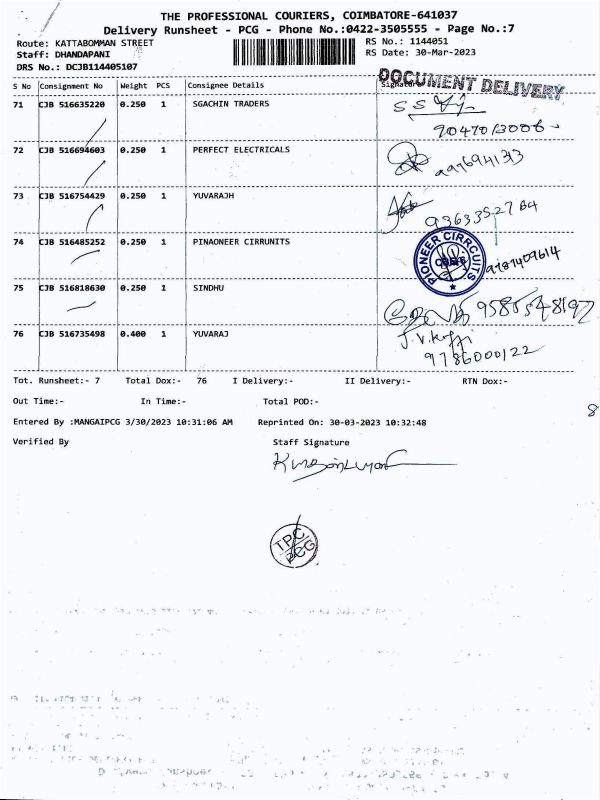 THE PROFESSIONAL COURIERS, COIMBATORE-641037
Delivery Runsheet - PCG - Phone No.:0422-3505555 - Page No.:7
Route: KATTABOMMAN STREET
RS No.: 1144051
Staff: DHANDAPANI
RS Date: 30-Mar-2023
DRS No.: DCJB114405107
DOCUMENT DELIVERY
S No Consignment No Weight PCS Consignee Details Signature
71 CJB 516635220 0.250 1 SGACHIN TRADERS
72 CJB 516694603 0.250 1 PERFECT ELECTRICALS
73 CJB 516754429 0.250 1 YUVARAJH
74 CJB 516485252 0.250 1 PINAONEER CIRRUNITS
PIONEER CIRRCUITS
9787409614
75 CJB 516818630 0.250 1 SINDHU
76 CJB 516735498 0.400 1 YUVARAJ
9786000122
Tot. Runsheet:- 7 Total Dox:- 76 I Delivery:- II Delivery:- RTN Dox:-
Out Time:- In Time:- Total POD:-
8
Entered By :MANGAIPCG 3/30/2023 10:31:06 AM Reprinted On: 30-03-2023 10:32:48
Verified By Staff Signature
TPC
PCG